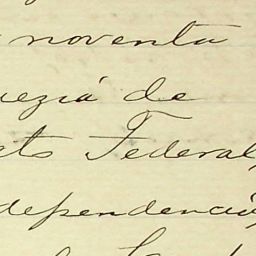 noventa
uezia de
to Federal,
dependencia